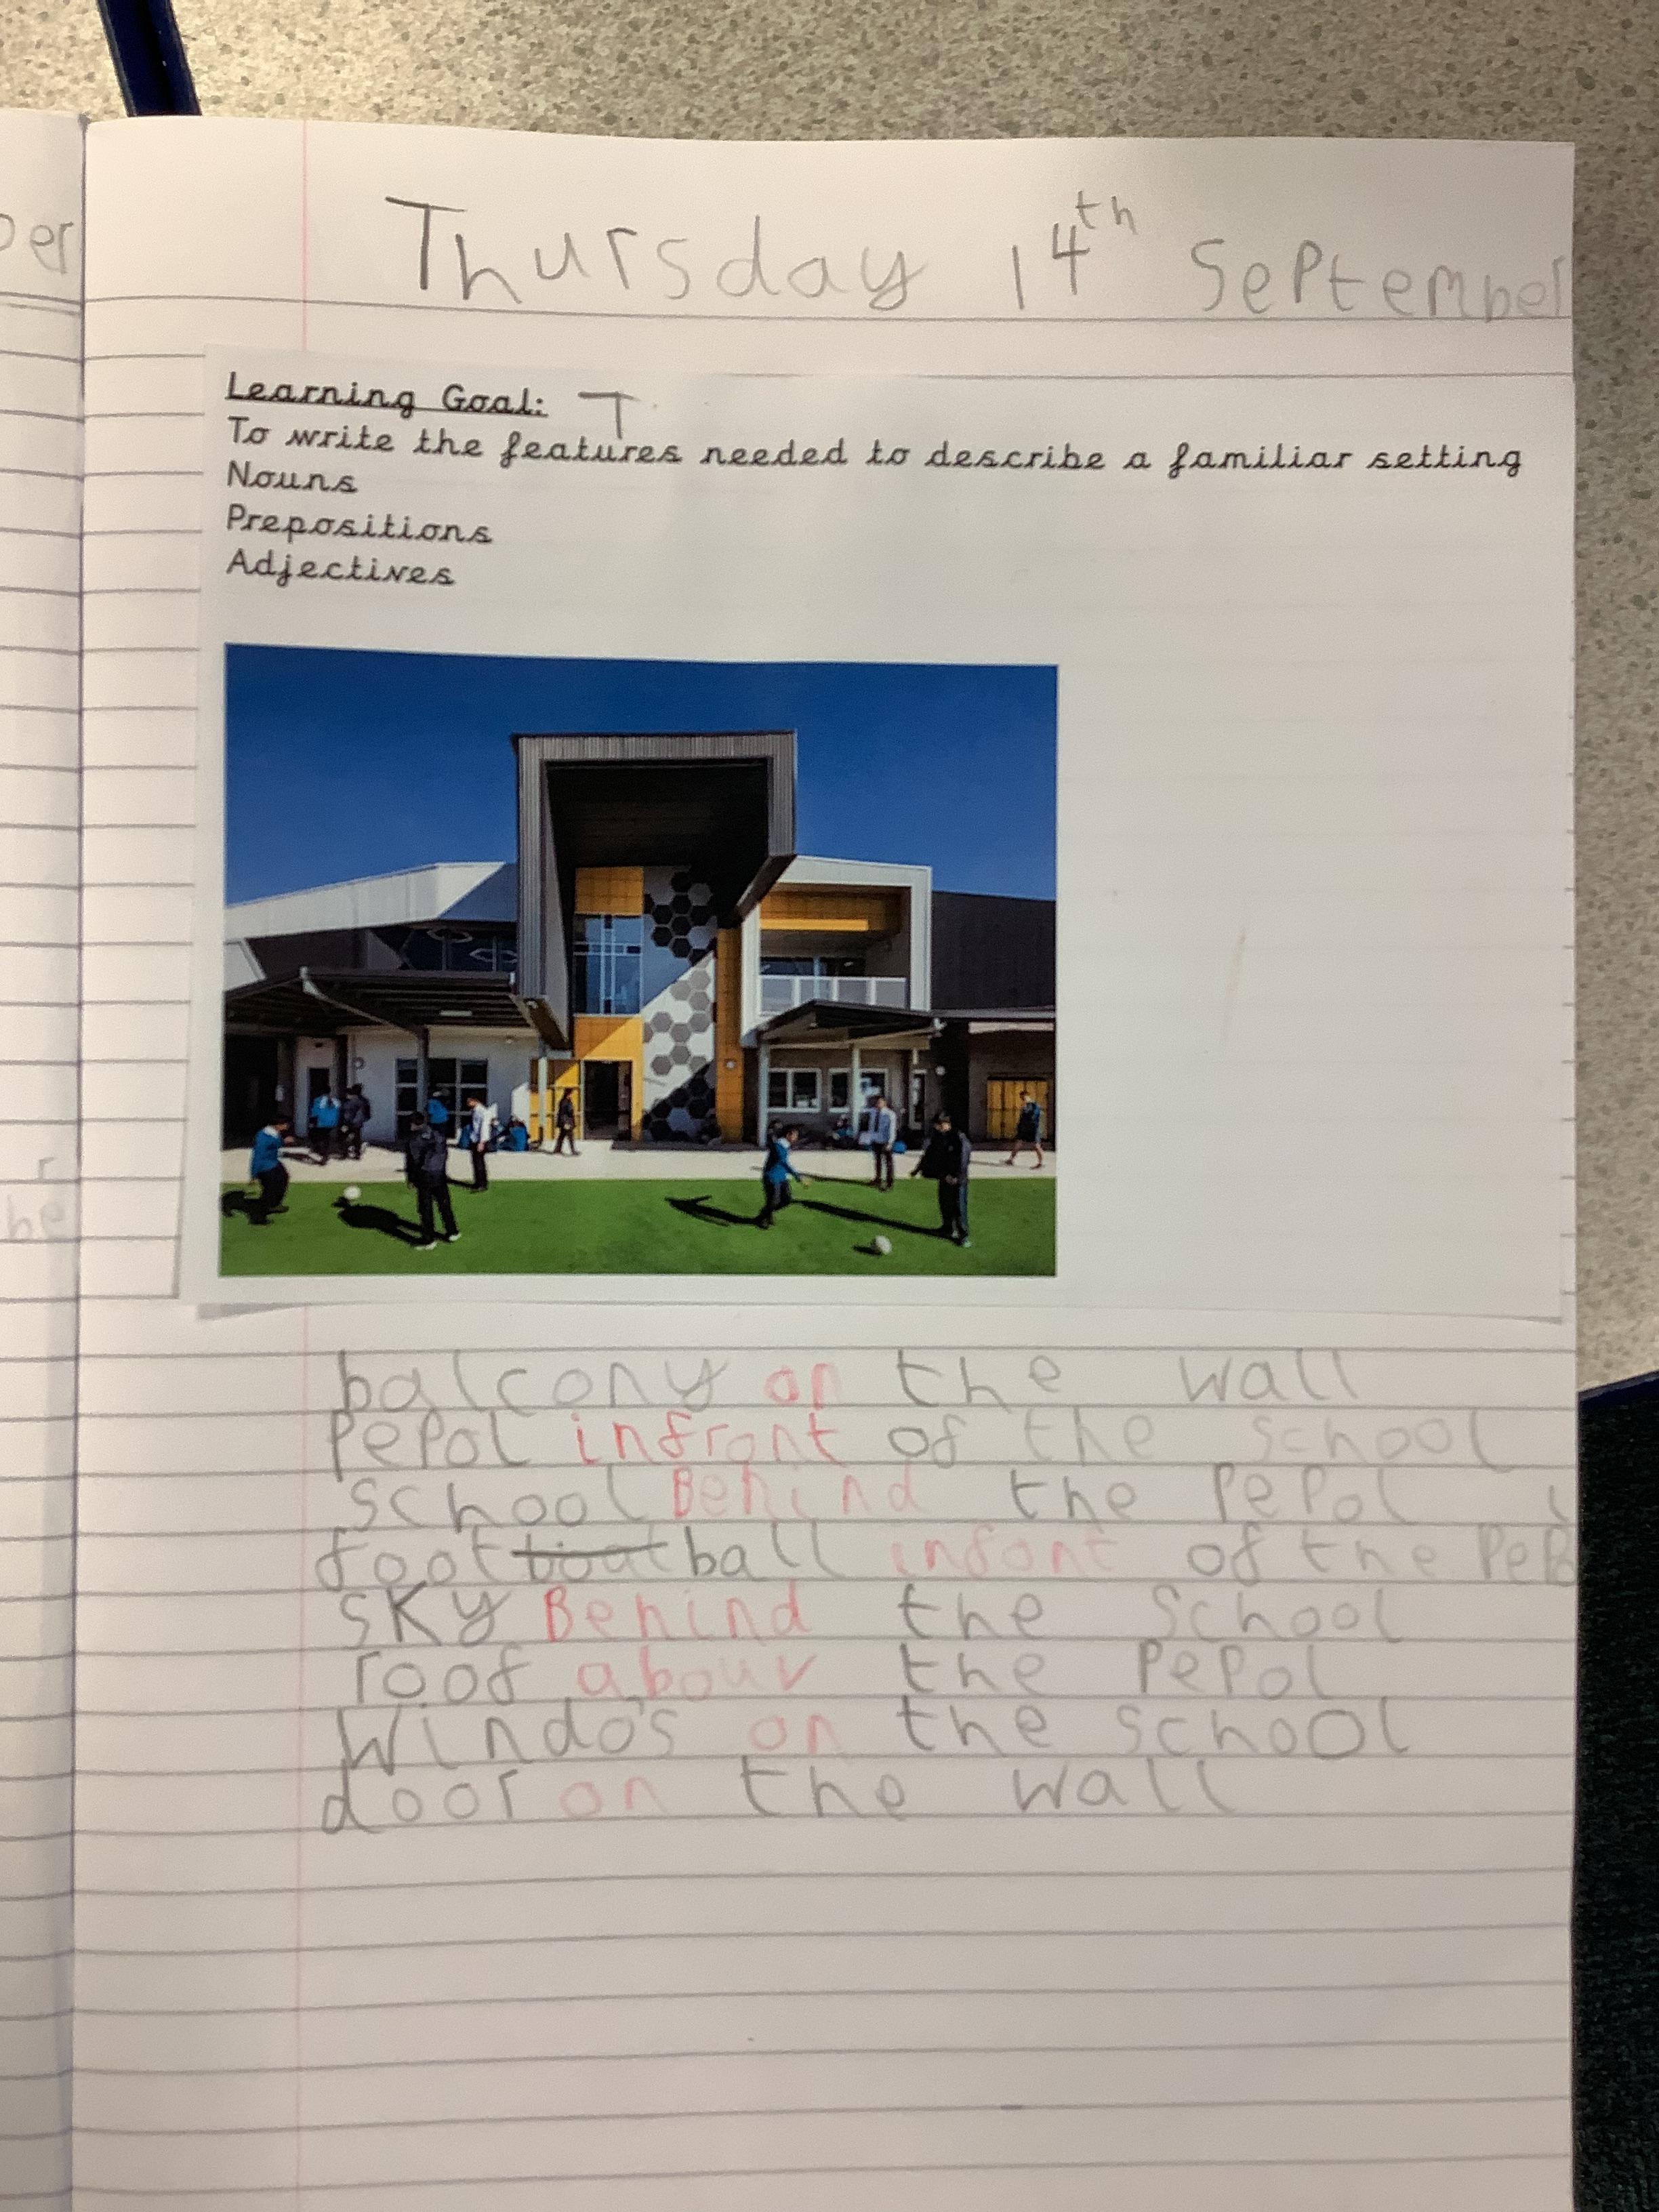 Thursday 14th September
Learning Goal: T
To write the features needed to describe a familiar setting
Nouns
Prepositions
Adjectives
balcony on the wall
Pepol infront of the school
school Behind the Pepol
foot ball infont of the Pepo
sky Behind the school
roof abouv the Pepol
Windo's on the school
door on the wall
ber
r
he